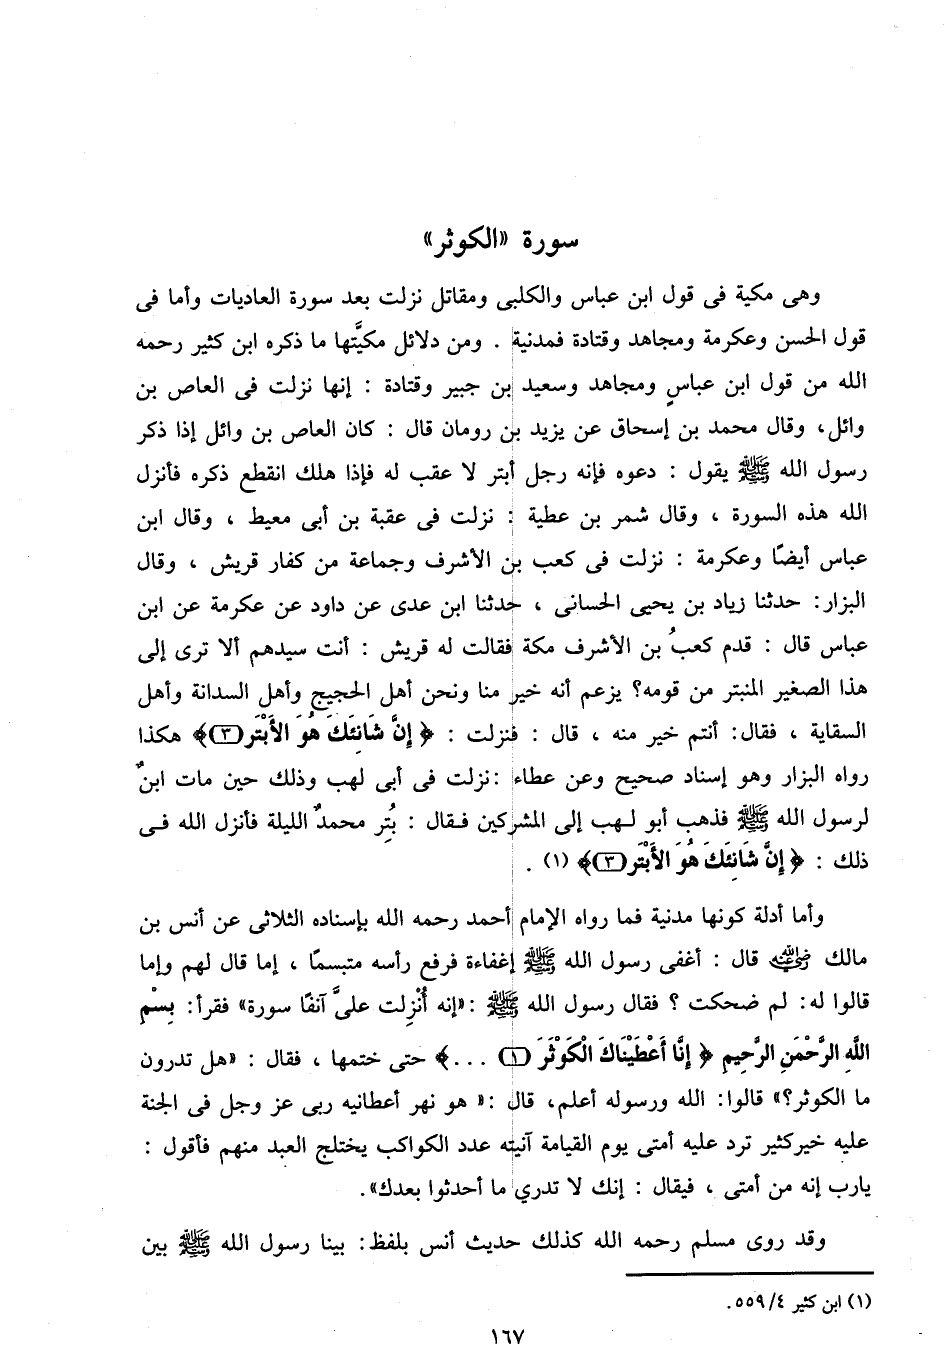 سورة «الكوثر»
وهى مكية فى قول ابن عباس والكلبى ومقاتل نزلت بعد سورة العاديات وأما فى
قول الحسن وعكرمة ومجاهد وقتادة فمدنية . ومن دلائل مكيَّتها ما ذكره ابن كثير رحمه
الله من قول ابن عباسٍ ومجاهد وسعيد بن جبير وقتادة : إنها نزلت فى العاص بن
وائل، وقال محمد بن إسحاق عن يزيد بن رومان قال : كان العاص بن وائل إذا ذكر
رسول الله ﷺ يقول : دعوه فإنه رجل أبتر لا عقب له فإذا هلك انقطع ذكره فأنزل
الله هذه السورة ، وقال شمر بن عطية : نزلت فى عقبة بن أبى معيط ، وقال ابن
عباس أيضًا وعكرمة : نزلت فى كعب بن الأشرف وجماعة من كفار قريش ، وقال
البزار: حدثنا زياد بن يحيى الحسانى ، حدثنا ابن عدى عن داود عن عكرمة عن ابن
عباس قال : قدم كعبُ بن الأشرف مكة فقالت له قريش : أنت سيدهم ألا ترى إلى
هذا الصغير المنبتر من قومه؟ يزعم أنه خير منا ونحن أهل الحجيج وأهل السدانة وأهل
السقاية ، فقال: أنتم خير منه ، قال : فنزلت : ﴿ إِنَّ شَانِئَكَ هُوَ الأَبْتَر(٣)﴾ هكذا
رواه البزار وهو إسناد صحيح وعن عطاء :نزلت فى أبى لهب وذلك حين مات ابنٌ
لرسول الله ﷺ فذهب أبو لـهب إلى المشركين فـقال : بُتِر محمدٌ الليلة فأنزل الله فـى
ذلك : ﴿ إِنَّ شَانِئَكَ هُوَ الأَبْتَر(٣)﴾ (١) .
وأما أدلة كونها مدنية فما رواه الإمام أحمد رحمه الله بإسناده الثلاثى عن أنس بن
مالك رضي الله عنه قال : أغفى رسول الله ﷺ إغفاءة فرفع رأسه متبسمًا ، إما قال لهم وإما
قالوا له: لم ضحكت ؟ فقال رسول الله ﷺ :«إنه أُنْزِلت علىَّ آنفًا سورة» فقرأ: بِسْمِ
اللَّهِ الرَّحْمَنِ الرَّحِيمِ ﴿ إِنَّا أَعْطَيْنَاكَ الْكَوْثَرَ (١) ...﴾ حتى ختمها ، فقال : «هل تدرون
ما الكوثر؟» قالوا: الله ورسوله أعلم، قال :« هو نهر أعطانيه ربى عز وجل فى الجنة
عليه خيركثير ترد عليه أمتى يوم القيامة آنيته عدد الكواكب يختلج العبد منهم فأقول :
يارب إنه من أمتى ، فيقال : إنك لا تدري ما أحدثوا بعدك».
وقد روى مسلم رحمه الله كذلك حديث أنس بلفظ: بينا رسول الله ﷺ بين
(١) ابن كثير ٤/ ٥٥٩.
١٦٧